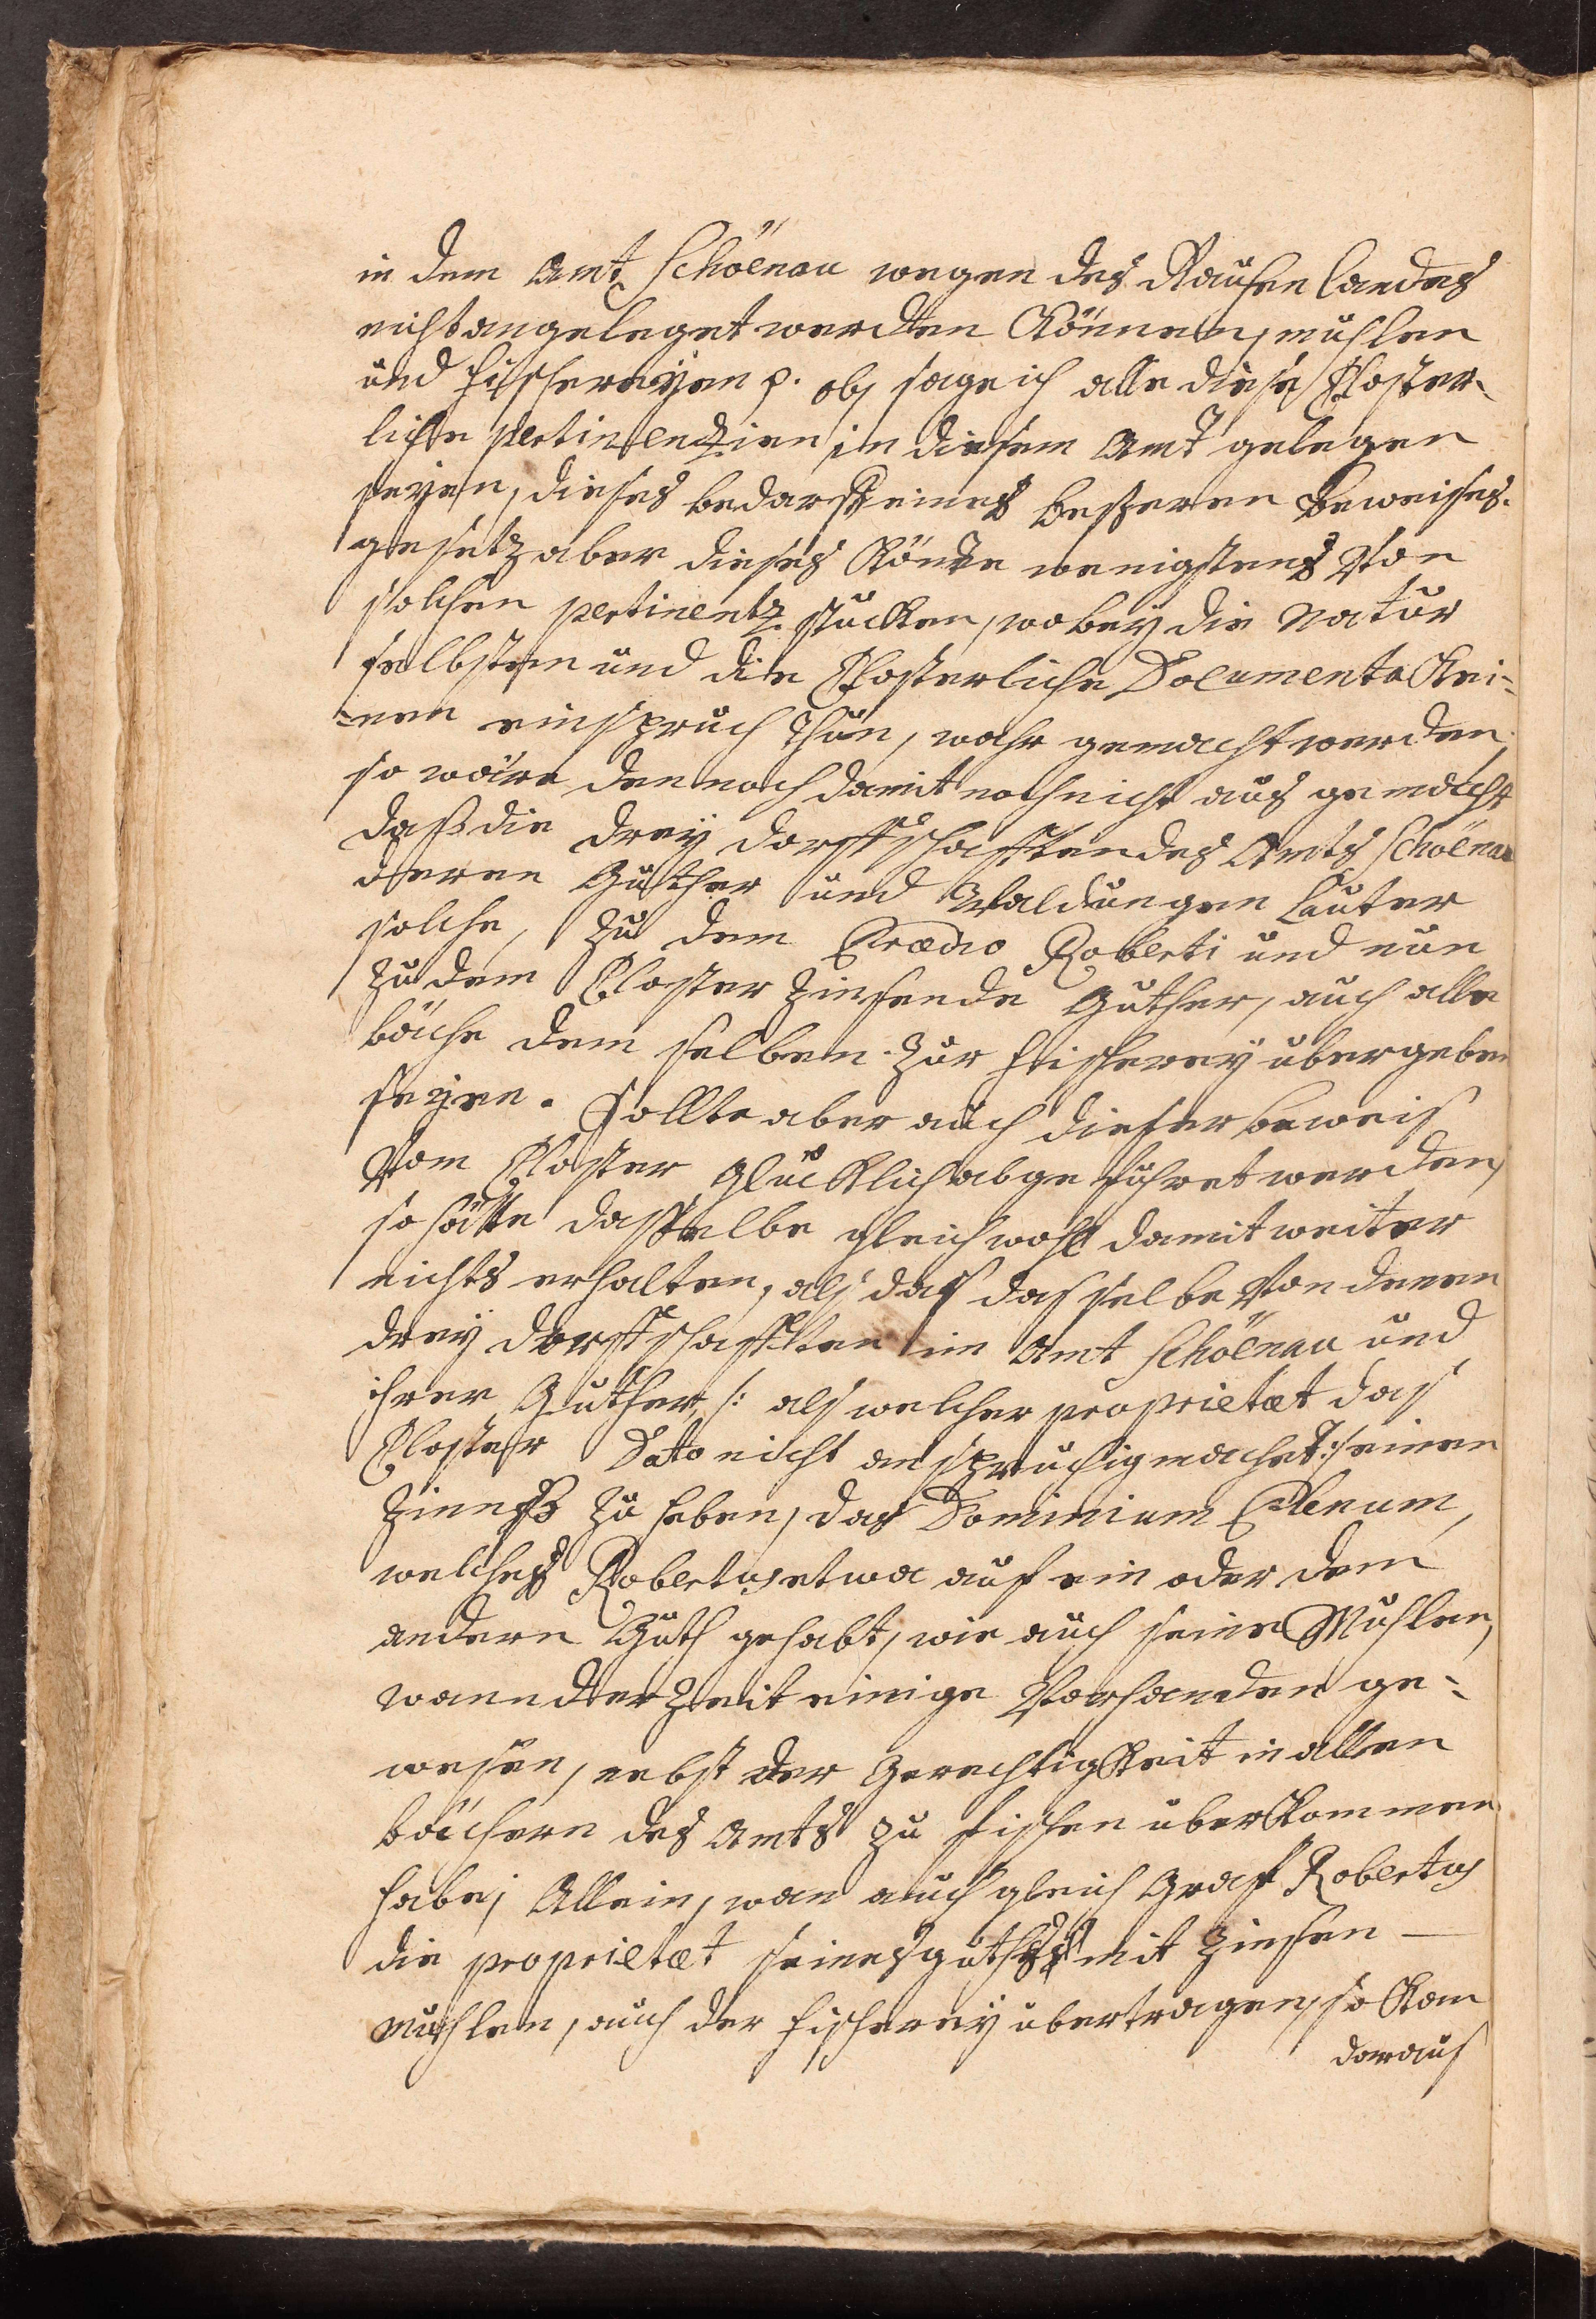 in dem Amt Schöenau wegen des Rauhen landes
nicht angeleget werden Können, mühlen
und fischereyen p. ob, sage ich alle diese Closter-
liche pertinenzien in diesem Amt gelegen
seyen, dieses bedarff eines beßeren beweises.
gesetz aber dieses Könte wenigstens Von
solchen pertinentz stücken, wobey die Natur
selbsten und die Closterliche Documenta Kei-
=nen einspruch thun, wahr gemacht werden.
so wäre dennoch damit noch nicht aus gemacht
daß die drey dorffschafften des Amts Schöenau
deren Güther und Waldungen lauter
solche, zu dem Prædio Roberti und nun
zu dem Closter zinsende Güther, auch alle
bäche dem selben zur fischerey übergeben
seyen. Sollte aber auch dieser beweis
Vom Closter glücklich abgeführet werden,
so hätte dasselbe gleichwohl damit weiter
nichts erhalten, als daß dasselbe Von denen
drey dorffschafften im Amt Schöenau und
ihrer Güther /: als welcher proprietæt das
Closter Dato nicht anspruchig machet :/ einen
Zinnß zu heben, das Dominium Plenum,
welches Robertus etwa auf ein oder dem
andern Guth gehabt, wie auch seine Mühlen,
wann der Zeit einige Vorhanden ge-
wesen, nebst der Gerechtigkeit in allen
bächern des Amts zu fischen überkommen
habe; Allein, wan auch gleich Graf Robertus
die proprietæt seines guthes mit Zinsen
mühlen, auch der fischerey übertragen, so Kan
daraus